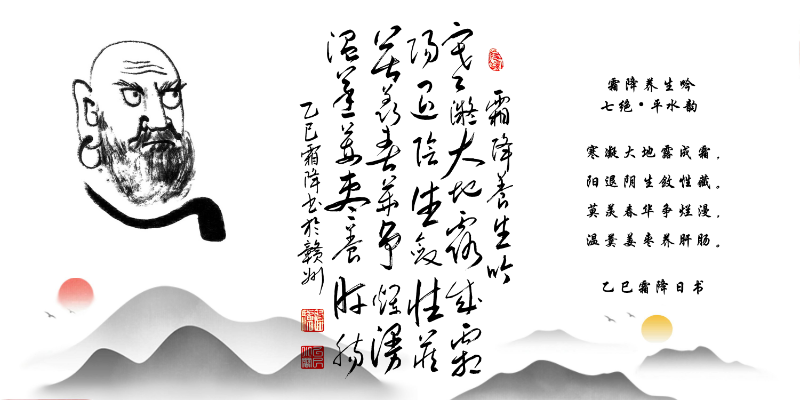 霜降養生吟
寒凝大地露成霜
陽退陰生斂性藏
莫羡春華爭爛漫
温羹姜棗養肝腸
乙巳霜降書於贛州
霜降养生吟
七绝·平水韵
寒凝大地露成霜，
阳退阴生敛性藏。
莫羡春华争烂漫，
温羹姜枣养肝肠。
乙巳霜降日书